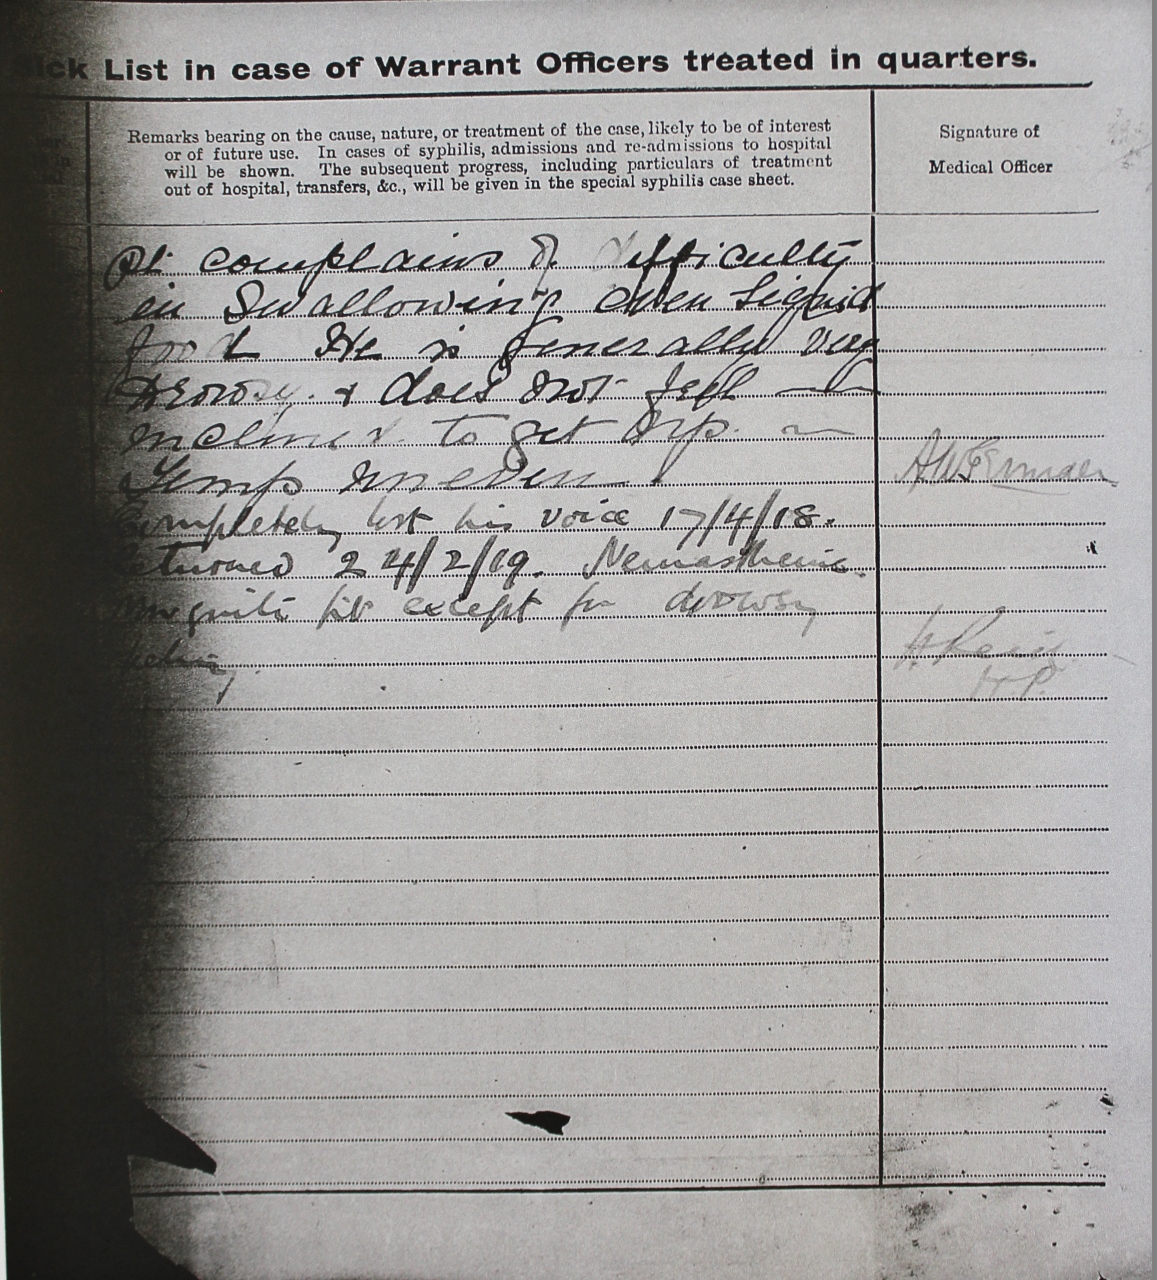 Sick List in case of Warrant Officers treated in quarters.
Remarks bearing on the cause, nature, or treatment of the case, likely to be of interest
or of future use. In cases of syphilis, admissions and re-admissions to hospital
will be shown. The subsequent progress, including particulars of treatment
out of hospital, transfers, &c., will be given in the special syphilis case sheet.
Signature of
Medical Officer
Pt. complains of difficulty
in Swallowing even liquid
food He is generally very
drowsy. & does not feel
inclined to get up.
Temp uneven
Completely lost his voice 17/4/18.
Returned 24/2/19. Neurasthenia.
quite fit except for drowsy